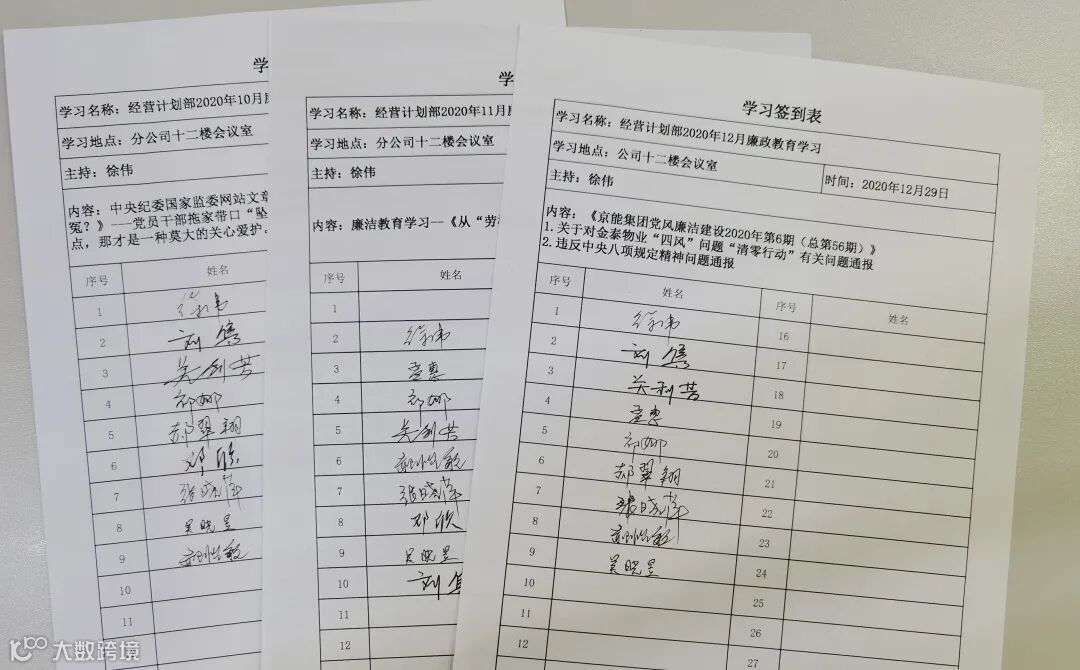 学
学习名称：经营计划部2020年10月
学习地点：分公司十二楼会议室
主持：徐伟
内容：中央纪委国家监委网站文章
冤？》---党员干部拖家带口“坠
点，那才是一种莫大的关心爱护。
序号 姓名
1 徐伟
2 刘
3 关利芳
4 祁娜
5 郝翠翔
6 邓欣
7 张晓萍
8 吴晓昱
9
10
11
学
学习名称：经营计划部2020年11月
学习地点：分公司十二楼会议室
主持：徐伟
内容：廉洁教育学习--《从“劳
序号 姓名
1
2 徐伟
3 童惠
4 祁娜
5 关利芳
6
7 张晓萍
8 邓欣
9 吴晓昱
10 刘
11
12
学习签到表
学习名称：经营计划部2020年12月廉政教育学习
学习地点：公司十二楼会议室 时间：2020年12月29日
主持：徐伟
内容：《京能集团党风廉洁建设2020年第6期（总第56期）》
1.关于对金泰物业“四风”问题“清零行动”有关问题通报
2.违反中央八项规定精神问题通报
序号 姓名 序号 姓名
1 徐伟 16
2 刘 17
3 关利芳 18
4 童惠 19
5 祁娜 20
6 郝翠翔 21
7 张晓萍 22
8 23
9 吴晓昱 24
10 25
11 26
12 27
大数跨境